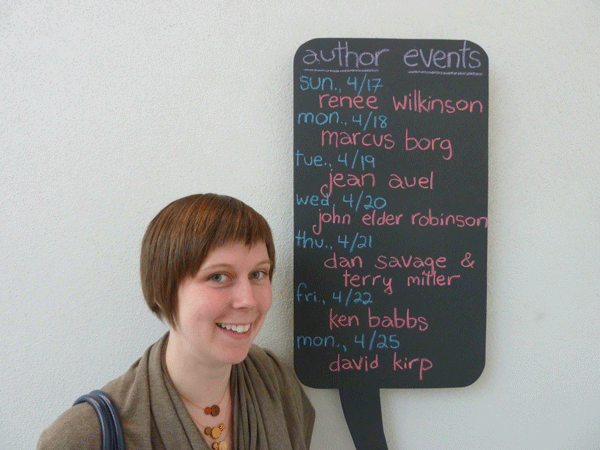 author events
sun., 4/17
renee wilkinson
mon., 4/18
marcus borg
tue., 4/19
jean auel
wed, 4/20
john elder robinson
thu., 4/21
dan savage &
terry miller
fri., 4/22
ken babbs
mon., 4/25
david kirp